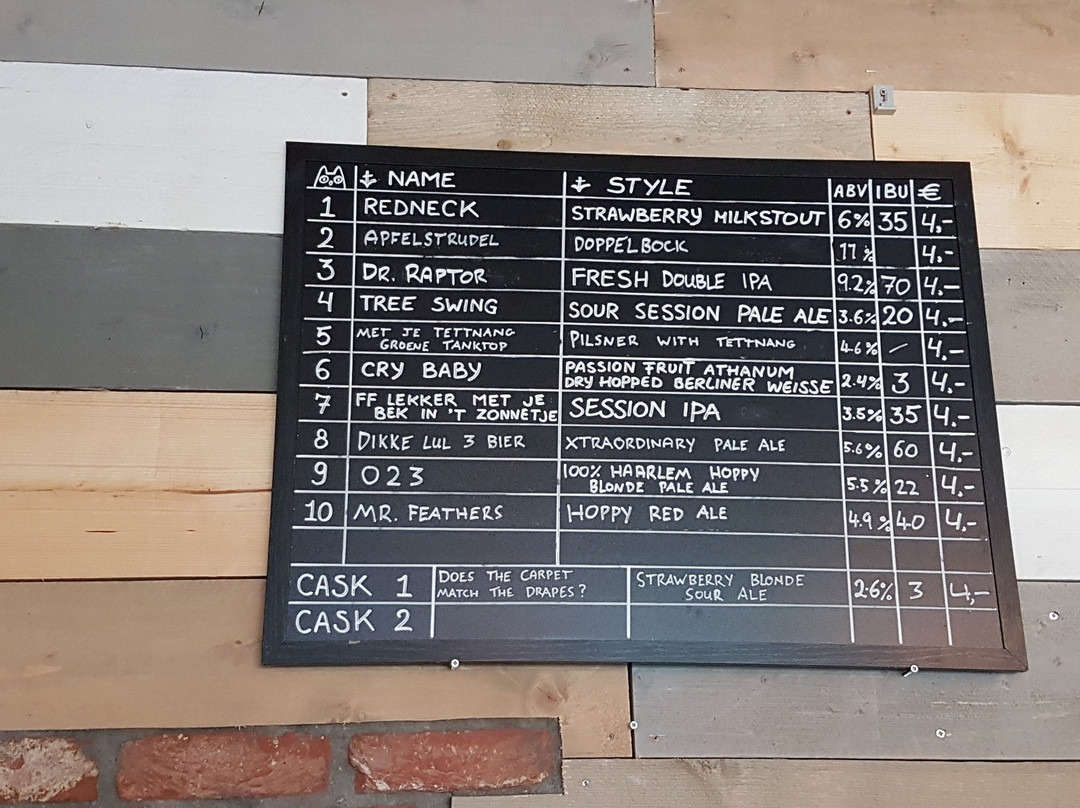 NAME STYLE ABV IBU €
1 REDNECK STRAWBERRY MILKSTOUT 6% 35 4,-
2 APFELSTRUDEL DOPPELBOCK 11% 4,-
3 DR. RAPTOR FRESH DOUBLE IPA 9.2% 70 4,-
4 TREE SWING SOUR SESSION PALE ALE 3.6% 20 4,-
5 MET JE TETTNANG PILSNER WITH TETTNANG 4.6% / 4,-
GROENE TANKTOP
6 CRY BABY PASSION FRUIT ATHANUM 2.4% 3 4,-
DRY HOPPED BERLINER WEISSE
7 FF LEKKER MET JE SESSION IPA 3.5% 35 4,-
BEK IN 'T ZONNETJE
8 DIKKE LUL 3 BIER XTRAORDINARY PALE ALE 5.6% 60 4,-
9 023 100% HAARLEM HOPPY 5.5% 22 4,-
BLONDE PALE ALE
10 MR. FEATHERS HOPPY RED ALE 4.9% 40 4,-
CASK 1 DOES THE CARPET STRAWBERRY BLONDE 2.6% 3 4,-
MATCH THE DRAPES? SOUR ALE
CASK 2